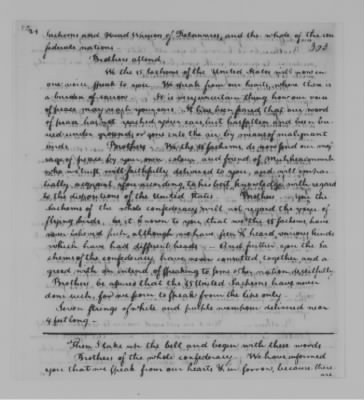 Sachems and Head Warriors of Delawares, and the whole of the con
federate nations.
Brothers attend,
We the 15 Sachems of the United States will now in
one voice speak to you. We speak from our hearts, where there is
a burden of sorrow. It is very uncertain thing how our voice
of peace may reach your ears. It has been feared that our word
of peace has not reached your ears, but has fallen and been bu
ried under grounds or gone into the air by means of malignant
birds. Brothers, We the 15 Sachems, do now send our mes
sage of peace by your own colour, and friend of Muhheacunnuk
who we trust will faithfully delivered to you, and will impar
tially acquaint you according to his best knowledge with regard
to the dispositions of the United States. Brothers, you the
Sachems of the whole confederacy will not regard the voice of
flying birds, be it known to you that we the 15 Sachems have
never believed such, although we have seen & heard, various birds
which have had different heads. And further you the Sa
chems of the confederacy, have never consulted together and a
greed with an intend of speaking to some other nation, deceitfully.
Brothers, be assured that the 15 United Sachems have never
done such, for we from to speak from the lips only.
Seven strings of white and purple wampum delivered near
4 feet long.
Then I take up the belt and began with these words
Brothers of the whole confederacy, We have informed
you that we speak from our hearts & in sorrow, because there
are